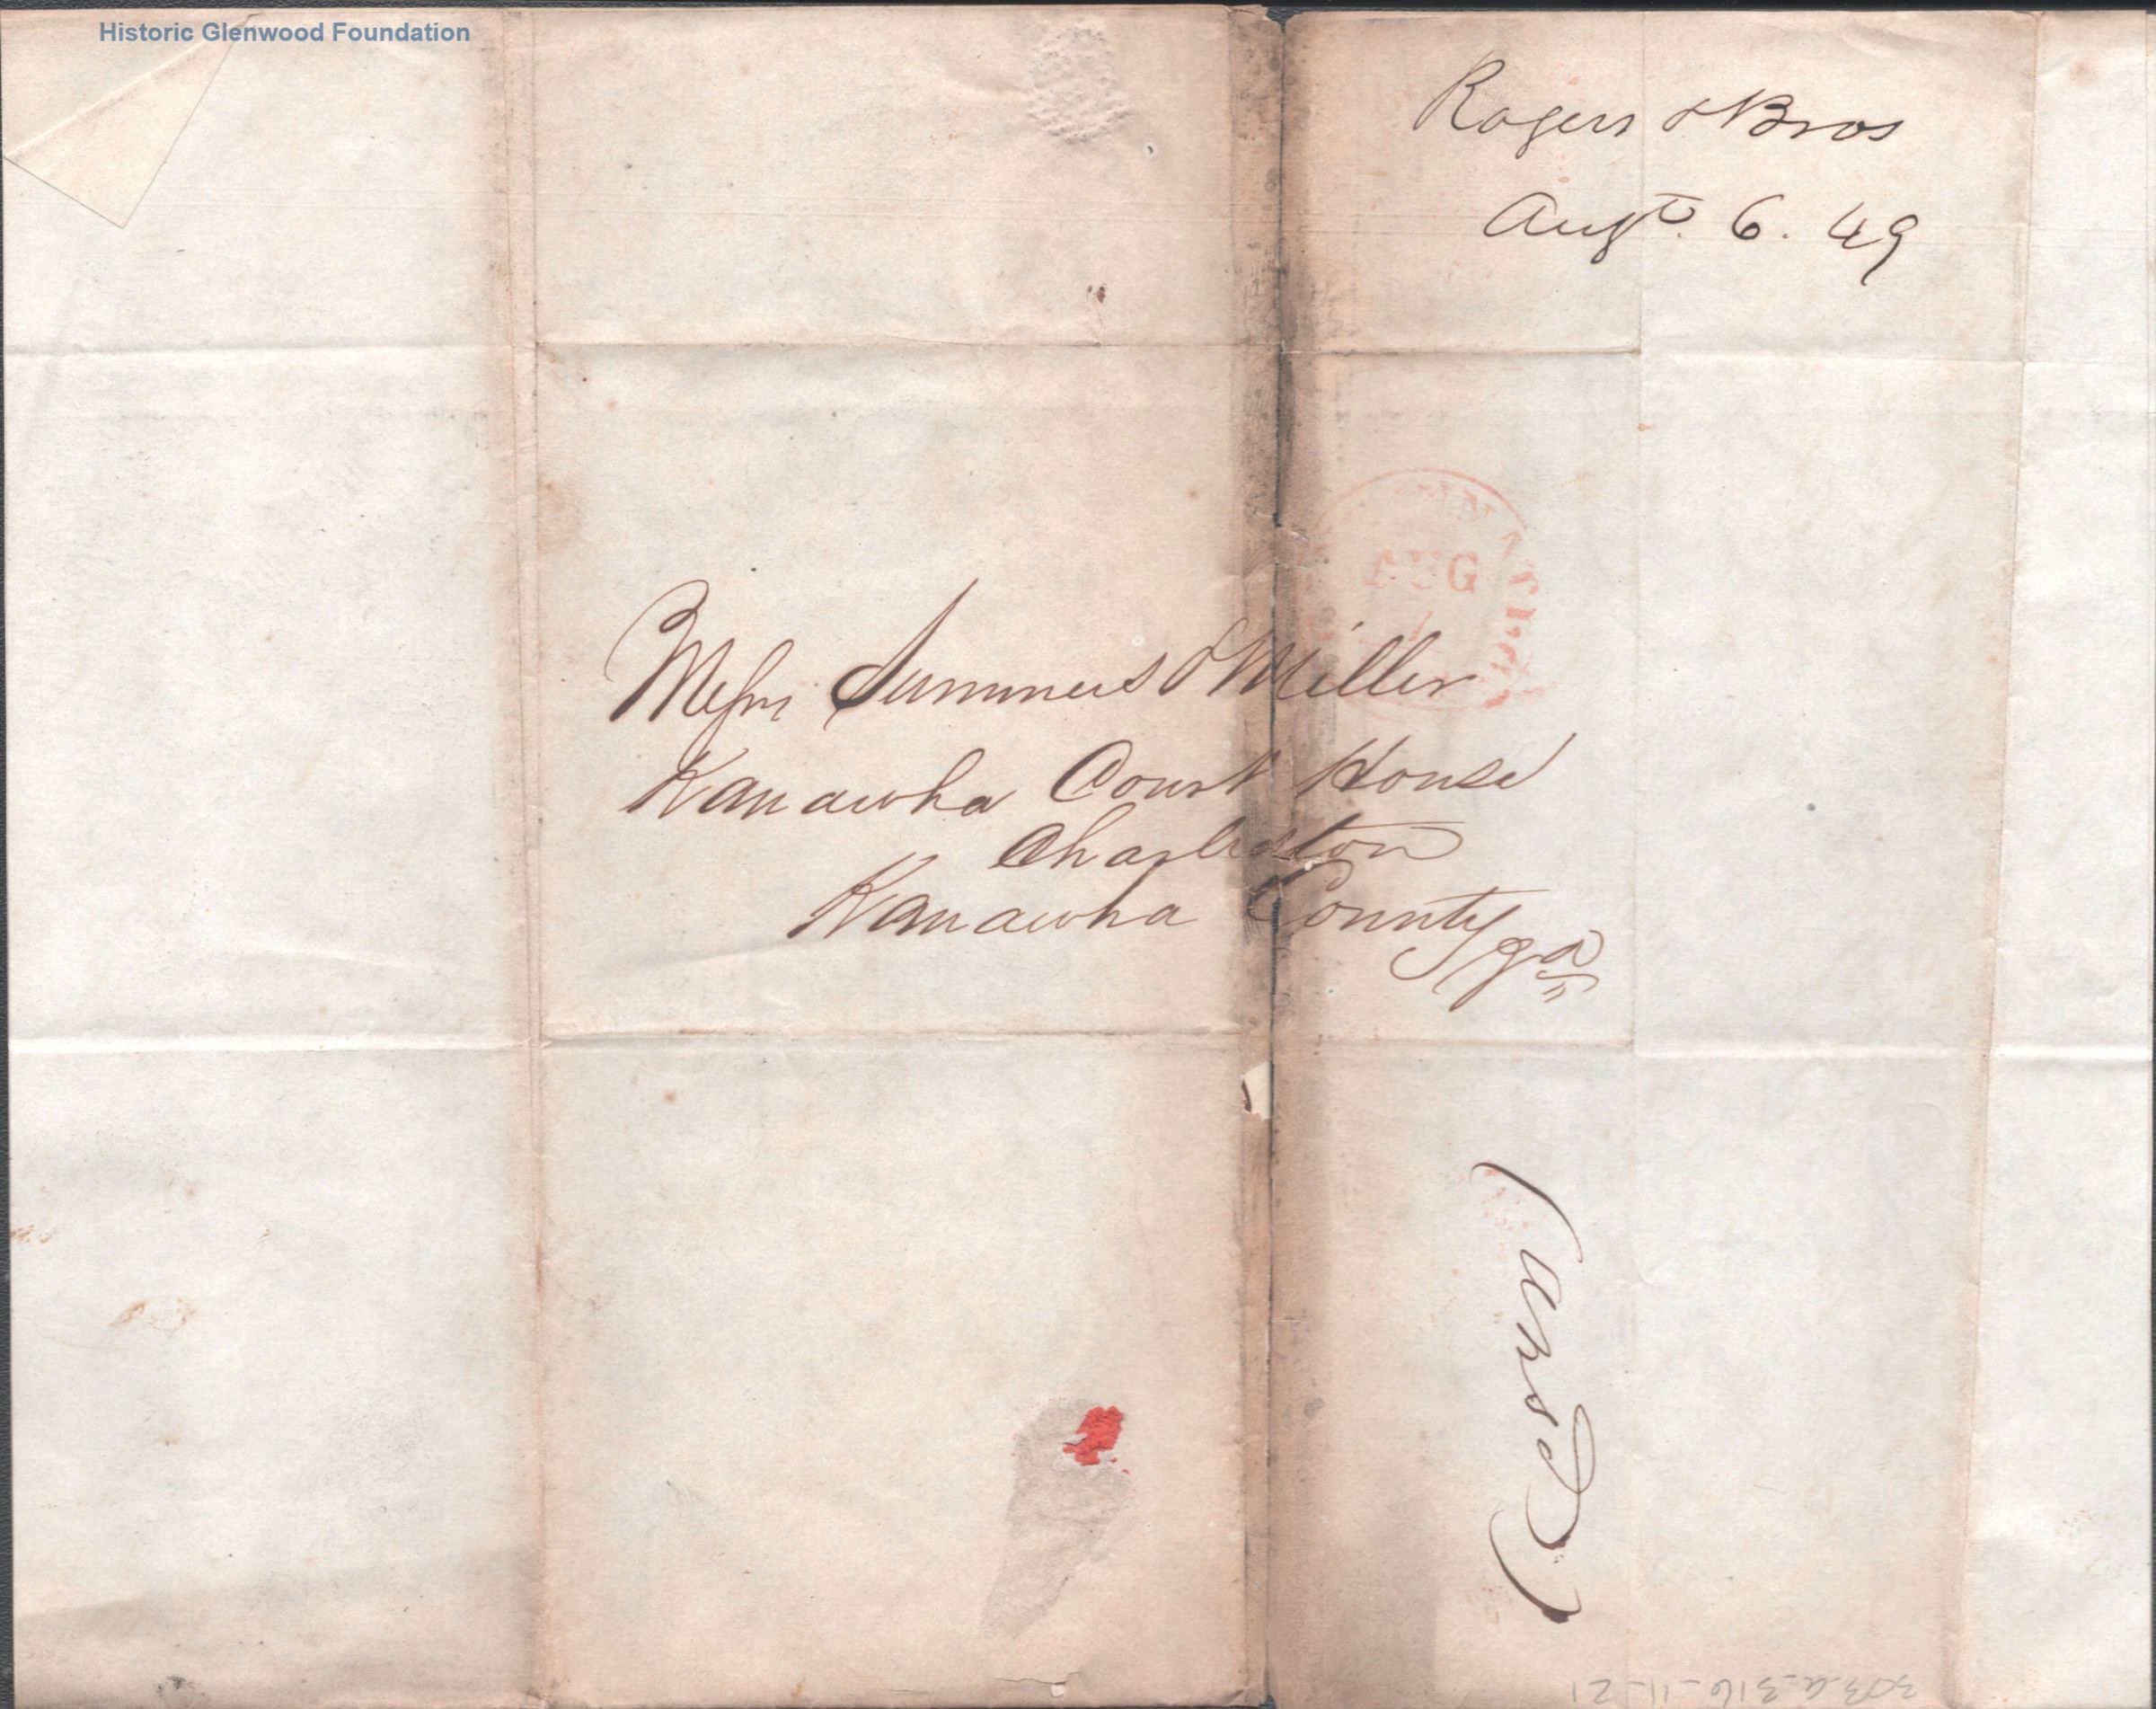 Historic Glenwood Foundation
Rogers & Bros
Augt. 6. 49
AUG
Messrs Summers & Miller
Kanawha Court House
Charleston
Kanawha County
(Ansd)